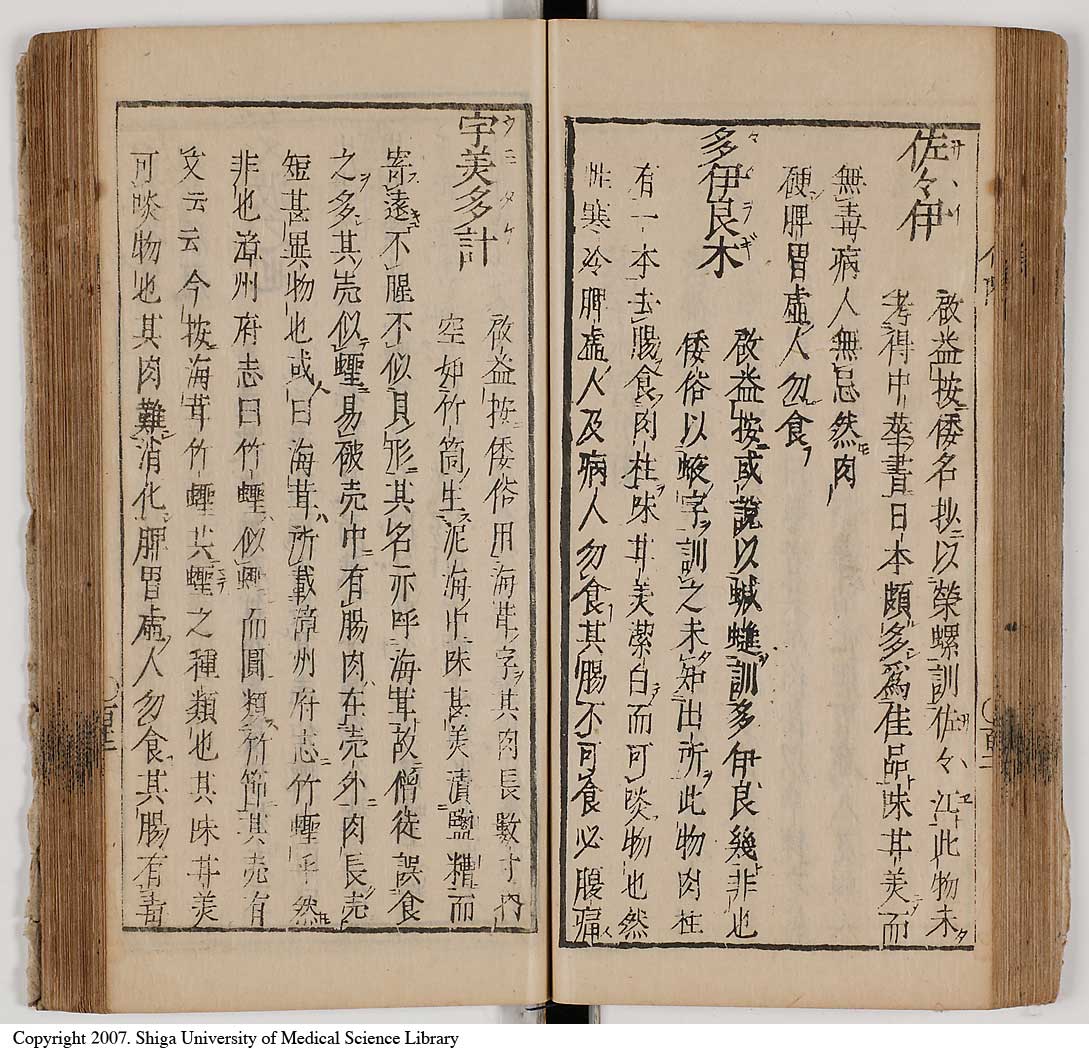 佐々伊
啓益按倭名抄以榮螺訓佐々江此物未
考得中華書日本頗多爲佳品味甘美而
無毒病人無忌然肉
硬脾胃虚人勿食
多伊良木
啓益按或說以蝛𧎿訓多伊良幾非也
倭俗以蛟字訓之未知出所此物肉柱
有一本去腸食肉柱味甘美潔白而可啖物也然
性寒冷脾虚人及病人勿食其腸不可食必腹痛
宇美多計
啓益按倭俗用海茸字其肉長數寸内
空如竹筒生泥海中味甚美漬鹽糟而
寄遠不腥不似貝形其名亦呼海茸故僧徒誤食
之多其壳似蟶易破壳中有腸肉在壳外肉長壳
短甚異物也或曰海茸所載漳州府志竹蟶乎然
非也漳州府志曰竹蟶似蟶而圓類竹節其壳有
文云云今按海茸竹蟶共蟶之種類也其味甘美
可啖物也其肉難消化脾胃虚人勿食其腸有毒
Copyright 2007. Shiga University of Medical Science Library